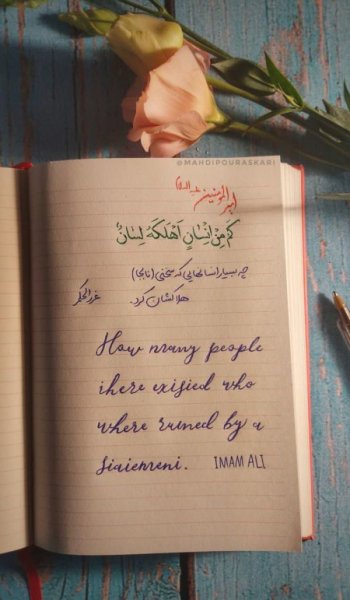 @MAHDIPOURASKARI
امیرالمومنین علیه السلام
كَم مِنْ اِنْسٰانٍ اَهْلَكَهُ لِسٰانٌ
چه بسیار انسانهایی که سخنی (نابجا)
هلاکشان کرد. غررالحکم
How many people
there existed who
where ruined by a
statement. IMAM ALI